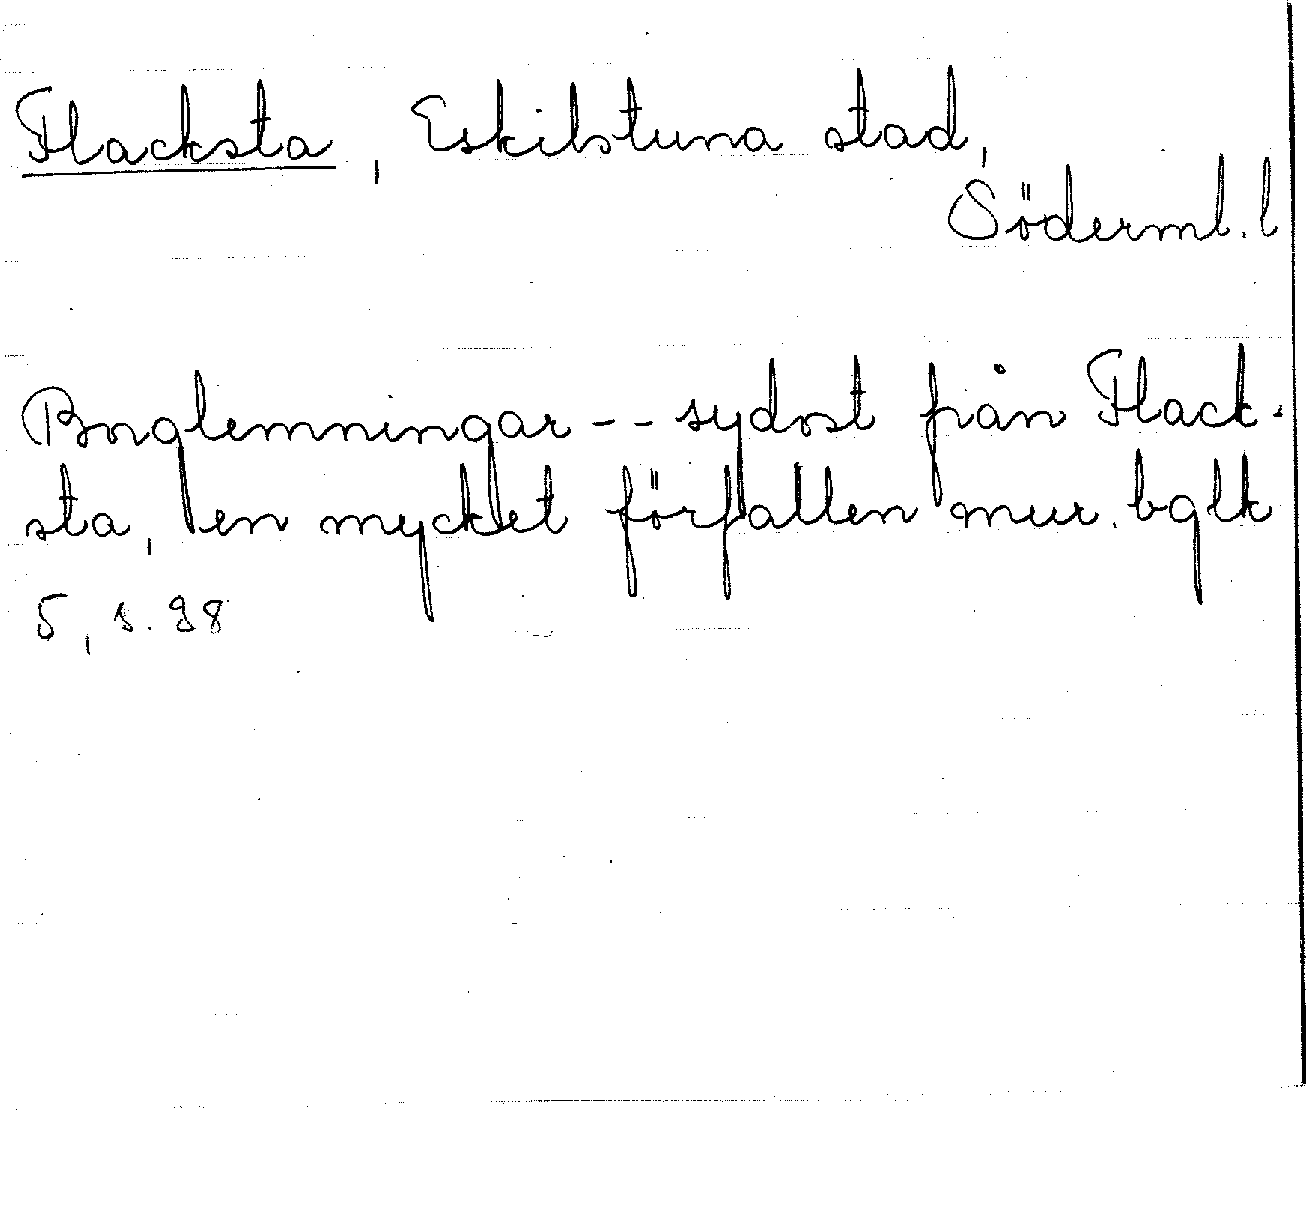 Flacksta, Eskilstuna stad,
Söderml. l
Borglemningar -- sydost från Flack-
sta, en mycket förfallen mur. bglk
5, s. 98